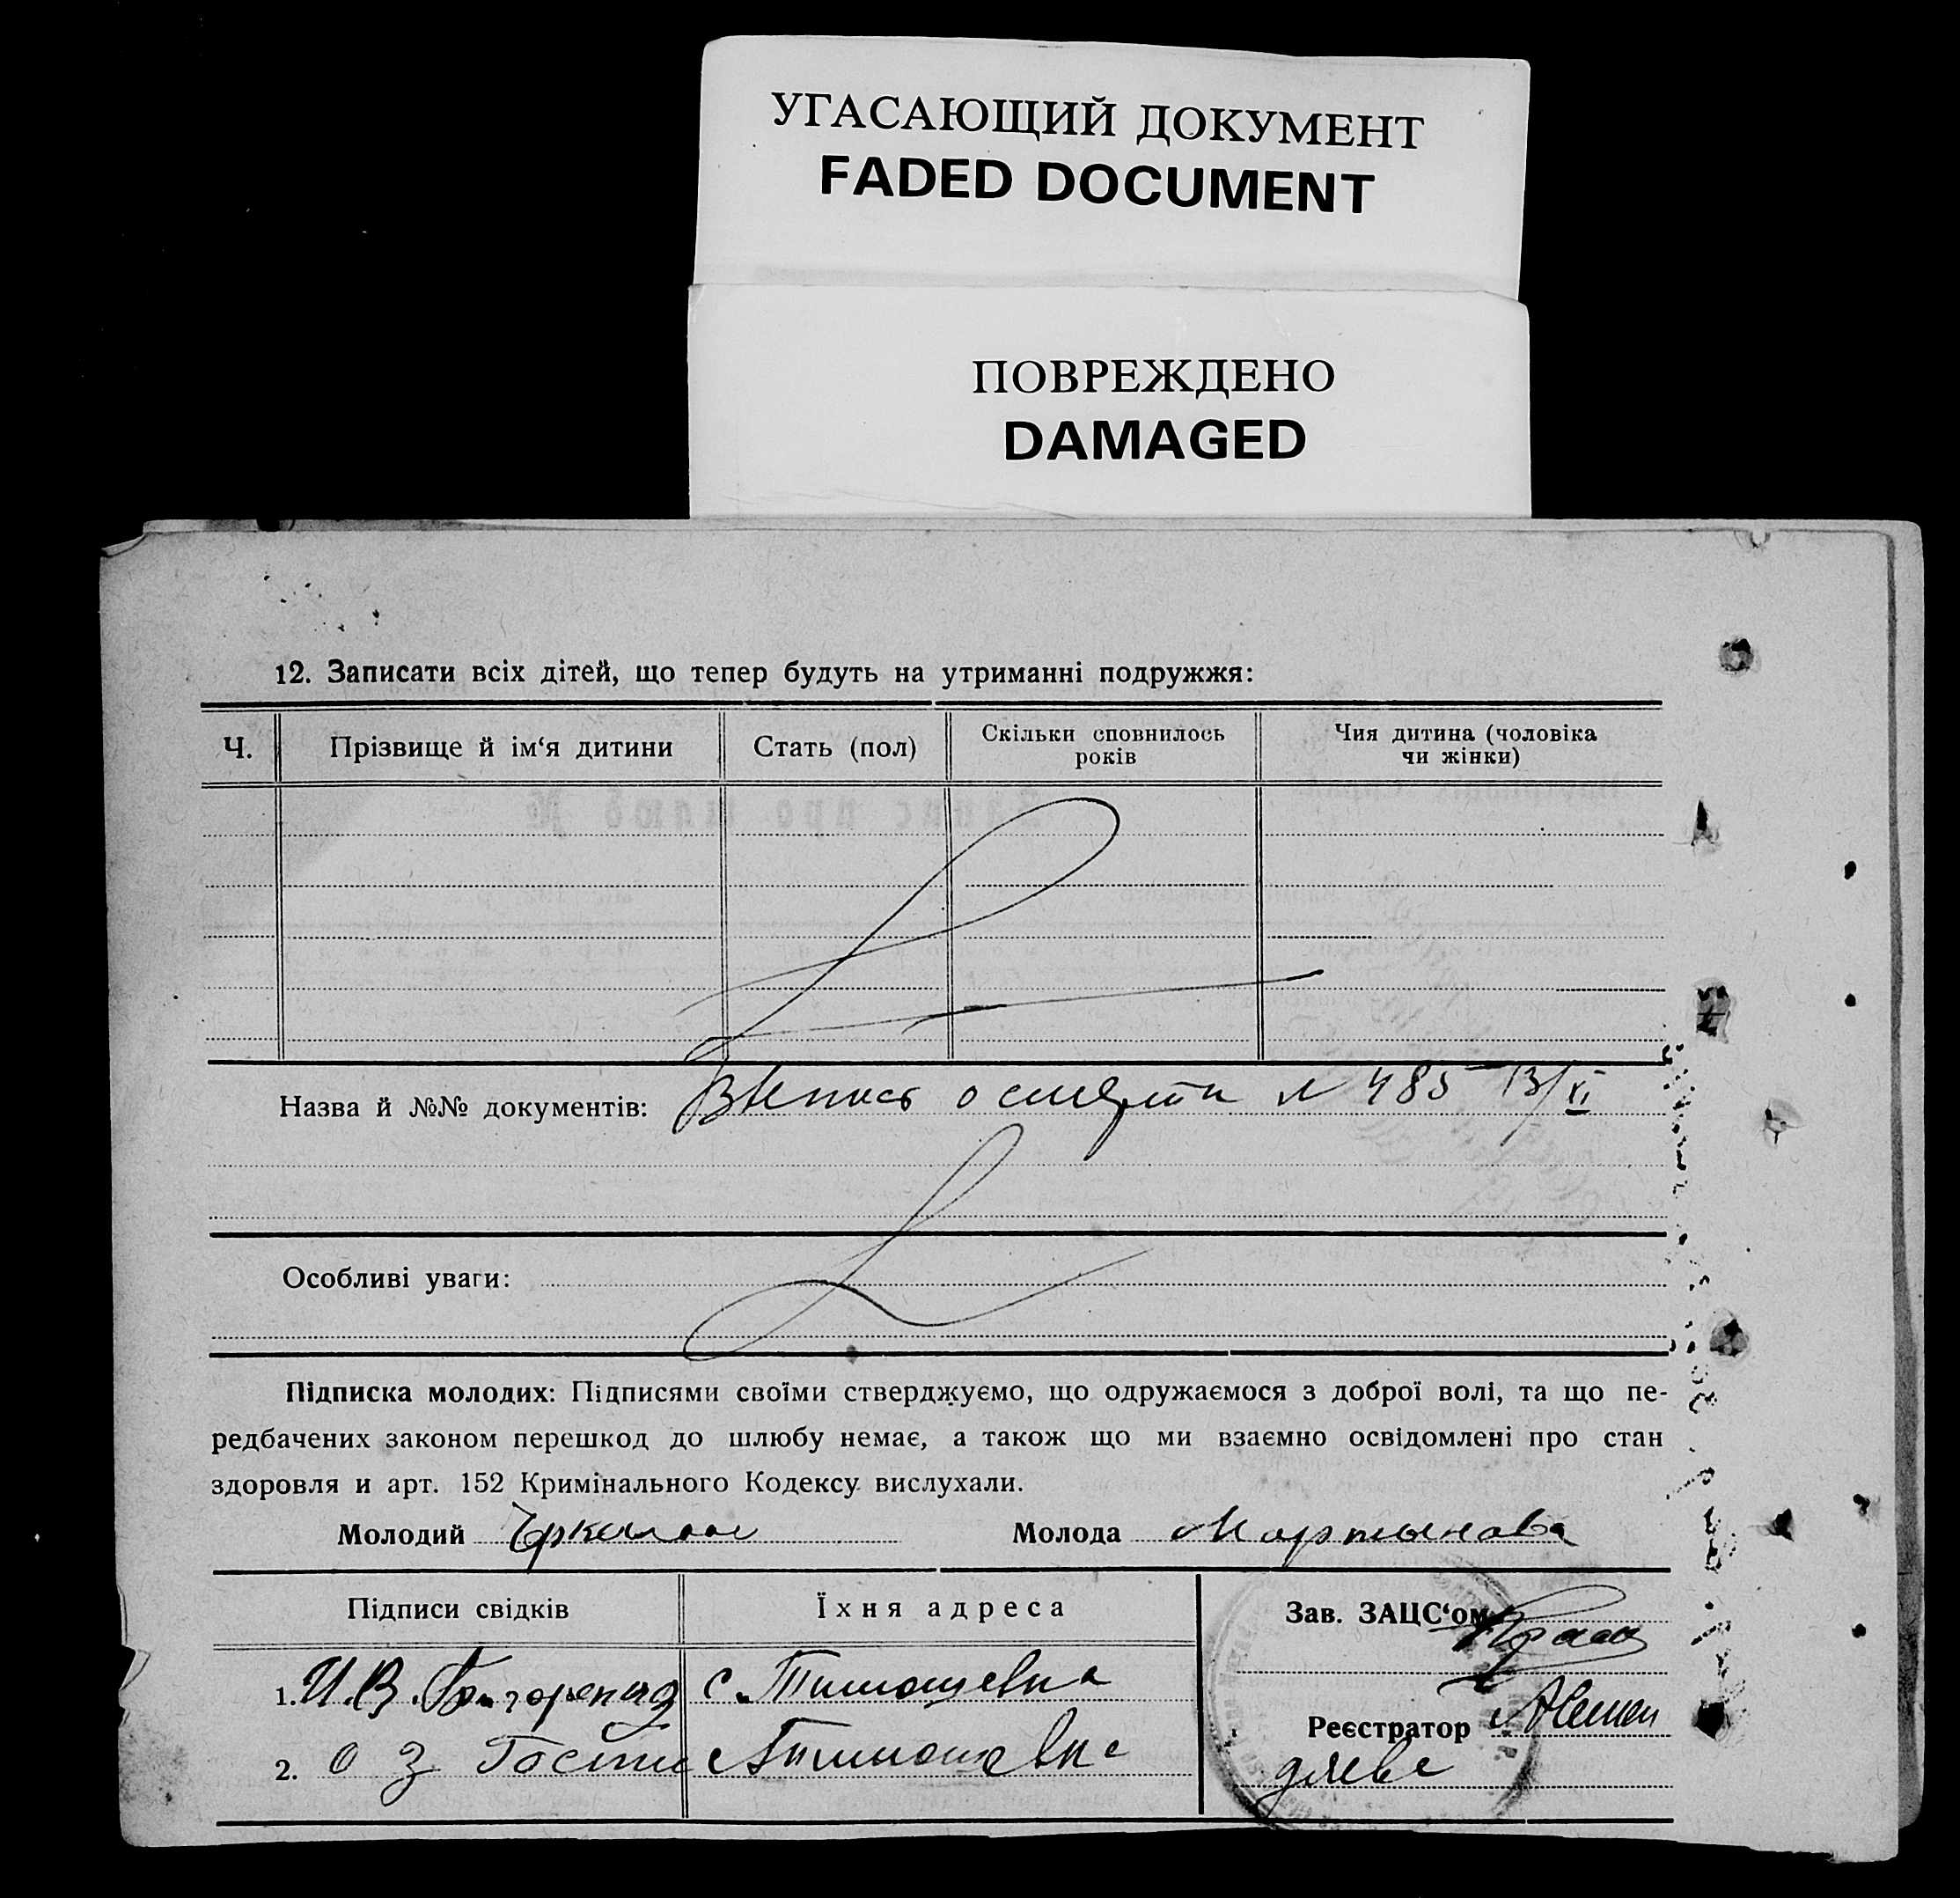 УГАСАЮЩИЙ ДОКУМЕНТ
FADED DOCUMENT
ПОВРЕЖДЕНО
DAMAGED
12. Записати всіх дітей, що тепер будуть на утриманні подружжя:
Ч. Прізвище й ім‘я дитини Стать (пол) Скільки сповнилось років Чия дитина (чоловіка чи жінки)
Назва й №№ документів: о смерти N 485 13/XI
Особливі уваги:
Підписка молодих: Підписями своїми стверджуємо, що одружаємося з доброї волі, та що пе-
редбачених законом перешкод до шлюбу немає, а також що ми взаємно освідомлені про стан
здоровля и арт. 152 Кримінального Кодексу вислухали.
Молодий Молода Мартынова
Підписи свідків Їхня адреса Зав. ЗАЦС‘ом
1. И.В. с. Тимошевка
Реєстратор
2. О З Гости Тимошевка